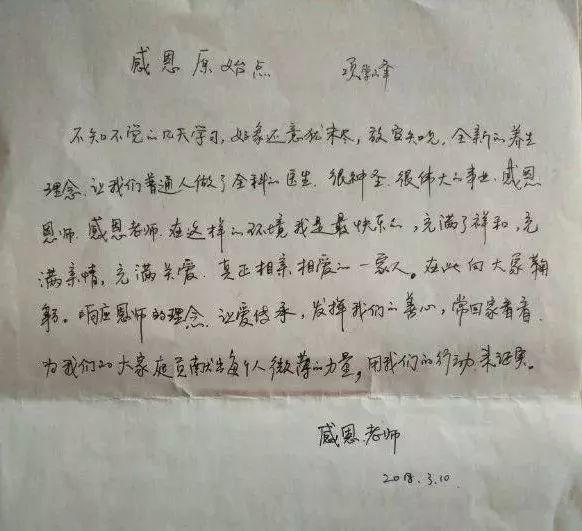 感恩原始点 项学峰
不知不觉的几天学习，好象还意犹未尽，放空知见，全新的养生
理念，让我们普通人做了全科的医生，很神圣，很伟大的事业，感恩
恩师，感恩老师，在这样的环境我是最快乐的，充满了祥和，充
满亲情，充满关爱，真正相亲相爱的一家人。在此向大家鞠
躬。响应恩师的理念，让爱传承，发挥我们的善心，常回家看看，
为我们的大家庭贡献出每个人微薄的力量，用我们的行动来证实。
感恩老师
2018.3.10